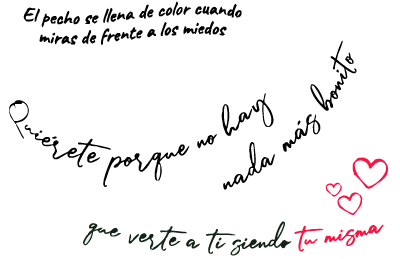 El pecho se llena de color cuando
miras de frente a los miedos
Quiérete porque no hay
nada más bonito
que verte a ti siendo tu misma